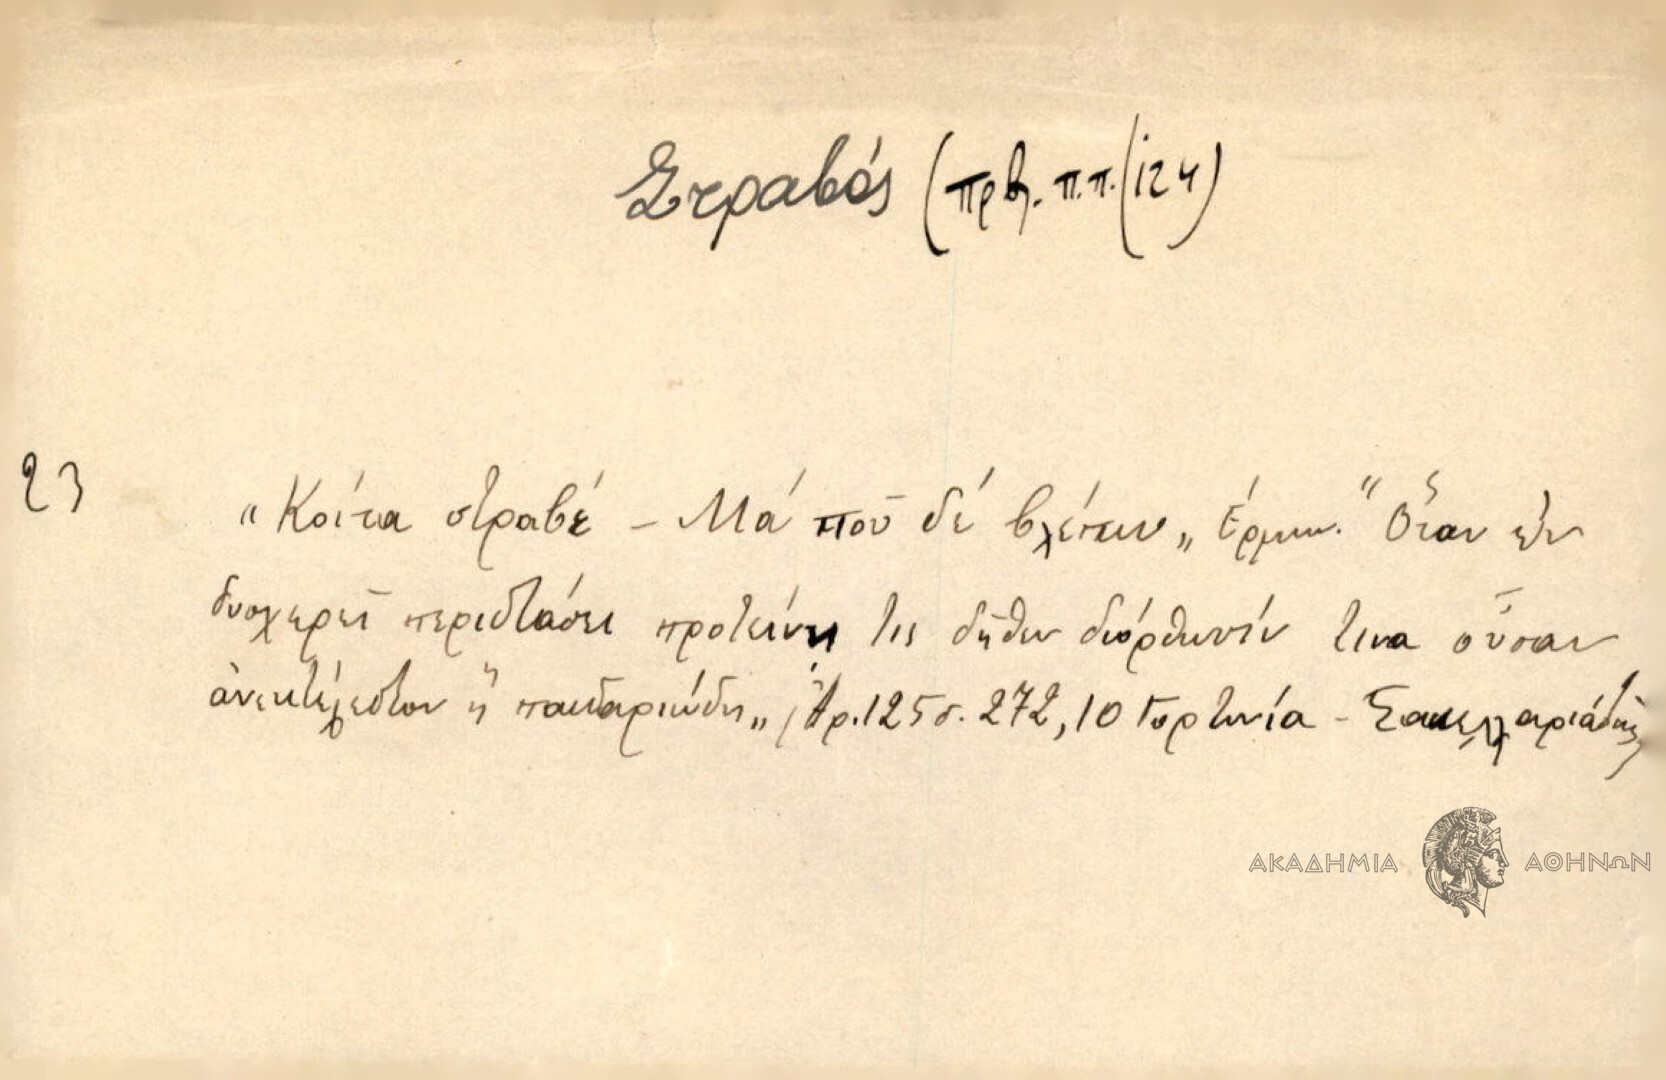 Στραβός (πρβ. π.π. (124)
23
"Κοίτα στραβέ - Μά ποῦ δέ βλέπω" Ἑρμην. "Ὅταν ἐν
δυσχερεῖ περιστάσει προτείνῃ τις δῆθεν διόρθωσίν τινα οὖσαν
ἀνεκτέλεστον ἤ παιδαριώδη" Ἀρ. 125 σ. 272, 10 Γορτυνία - Σακελλαριάδης)
ΑΚΑΔΗΜΙΑ ΑΘΗΝΩΝ